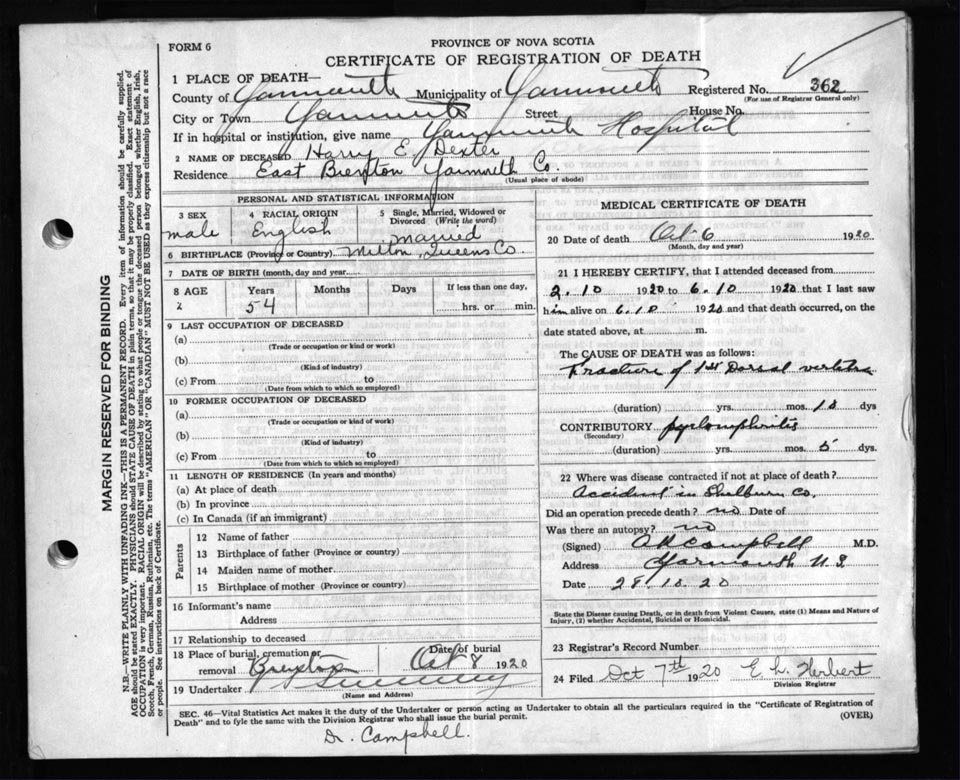 FORM 6
PROVINCE OF NOVA SCOTIA
CERTIFICATE OF REGISTRATION OF DEATH
1 PLACE OF DEATH—
County of Yarmouth Municipality of Yarmouth Registered No. 362
(For use of Registrar General only)
City or Town Yarmouth Street House No.
If in hospital or institution, give name Yarmouth Hospital
2 NAME OF DECEASED Harry E Dexter
Residence East Yarmouth Co.
(Usual place of abode)
PERSONAL AND STATISTICAL INFORMATION
3 SEX male
4 RACIAL ORIGIN English
5 Single, Married, Widowed or Divorced (Write the word) married
6 BIRTHPLACE (Province or County) Milton, Queens Co.
7 DATE OF BIRTH (month, day and year)
8 AGE Years 54 Months Days If less than one day, hrs. or min.
9 LAST OCCUPATION OF DECEASED
(a)
(Trade or occupation or kind or work)
(b)
(Kind of industry)
(c) From to
(Date from which to which so employed)
10 FORMER OCCUPATION OF DECEASED
(a)
(Trade or occupation or kind of work)
(b)
(Kind of industry)
(c) From to
(Date from which to which so employed)
11 LENGTH OF RESIDENCE (In years and months)
(a) At place of death
(b) In province
(c) In Canada (if an immigrant)
Parents
12 Name of father
13 Birthplace of father (Province or country)
14 Maiden name of mother
15 Birthplace of mother (Province or country)
16 Informant's name
Address
17 Relationship to deceased
18 Place of burial, cremation or removal Date of burial Oct 8 1920
19 Undertaker
(Name and Address)
MEDICAL CERTIFICATE OF DEATH
20 Date of death Oct 6 1920
(Month, day and year)
21 I HEREBY CERTIFY, that I attended deceased from
2.10 1920 to 6.10 1920 that I last saw
him alive on 6.10 1920 and that death occurred, on the
date stated above, at m.
The CAUSE OF DEATH was as follows:
Fracture of 1st Dorsal vertebra
(duration) yrs. mos. 10 dys
CONTRIBUTORY pyelonephritis
(Secondary)
(duration) yrs. mos. 5 dys.
22 Where was disease contracted if not at place of death?
Accident in Shelburn Co.
Did an operation precede death? no Date of
Was there an autopsy? no
(Signed) Campbell M.D.
Address Yarmouth N.S.
Date 28.10.20
State the Disease causing Death, or in death from Violent Causes, state (1) Means and Nature of
Injury, (2) whether Accidental, Suicidal or Homicidal.
23 Registrar's Record Number
24 Filed Oct 7th 1920 E. L. Herbert
Division Registrar
SEC. 46—Vital Statistics Act makes it the duty of the Undertaker or person acting as Undertaker to obtain all the particulars required in the "Certificate of Registration of
Death" and to fyle the same with the Division Registrar who shall issue the burial permit.
(OVER)
Dr. Campbell.
MARGIN RESERVED FOR BINDING
N.B.—WRITE PLAINLY WITH UNFADING INK—THIS IS A PERMANENT RECORD. Every item of information should be carefully supplied.
AGE should be stated EXACTLY. PHYSICIANS should STATE CAUSE OF DEATH in plain terms, so that it may be properly classified. Exact statement of
OCCUPATION is very important. RACIAL ORIGIN will be described by stating to what people or tongue the deceased person belonged whether English, Irish,
Scotch, French, German, Russian, Ruthenian, etc. The terms "AMERICAN" OR "CANADIAN" MUST NOT BE USED as they express citizenship but not a race
or people. See instructions on back of Certificate.